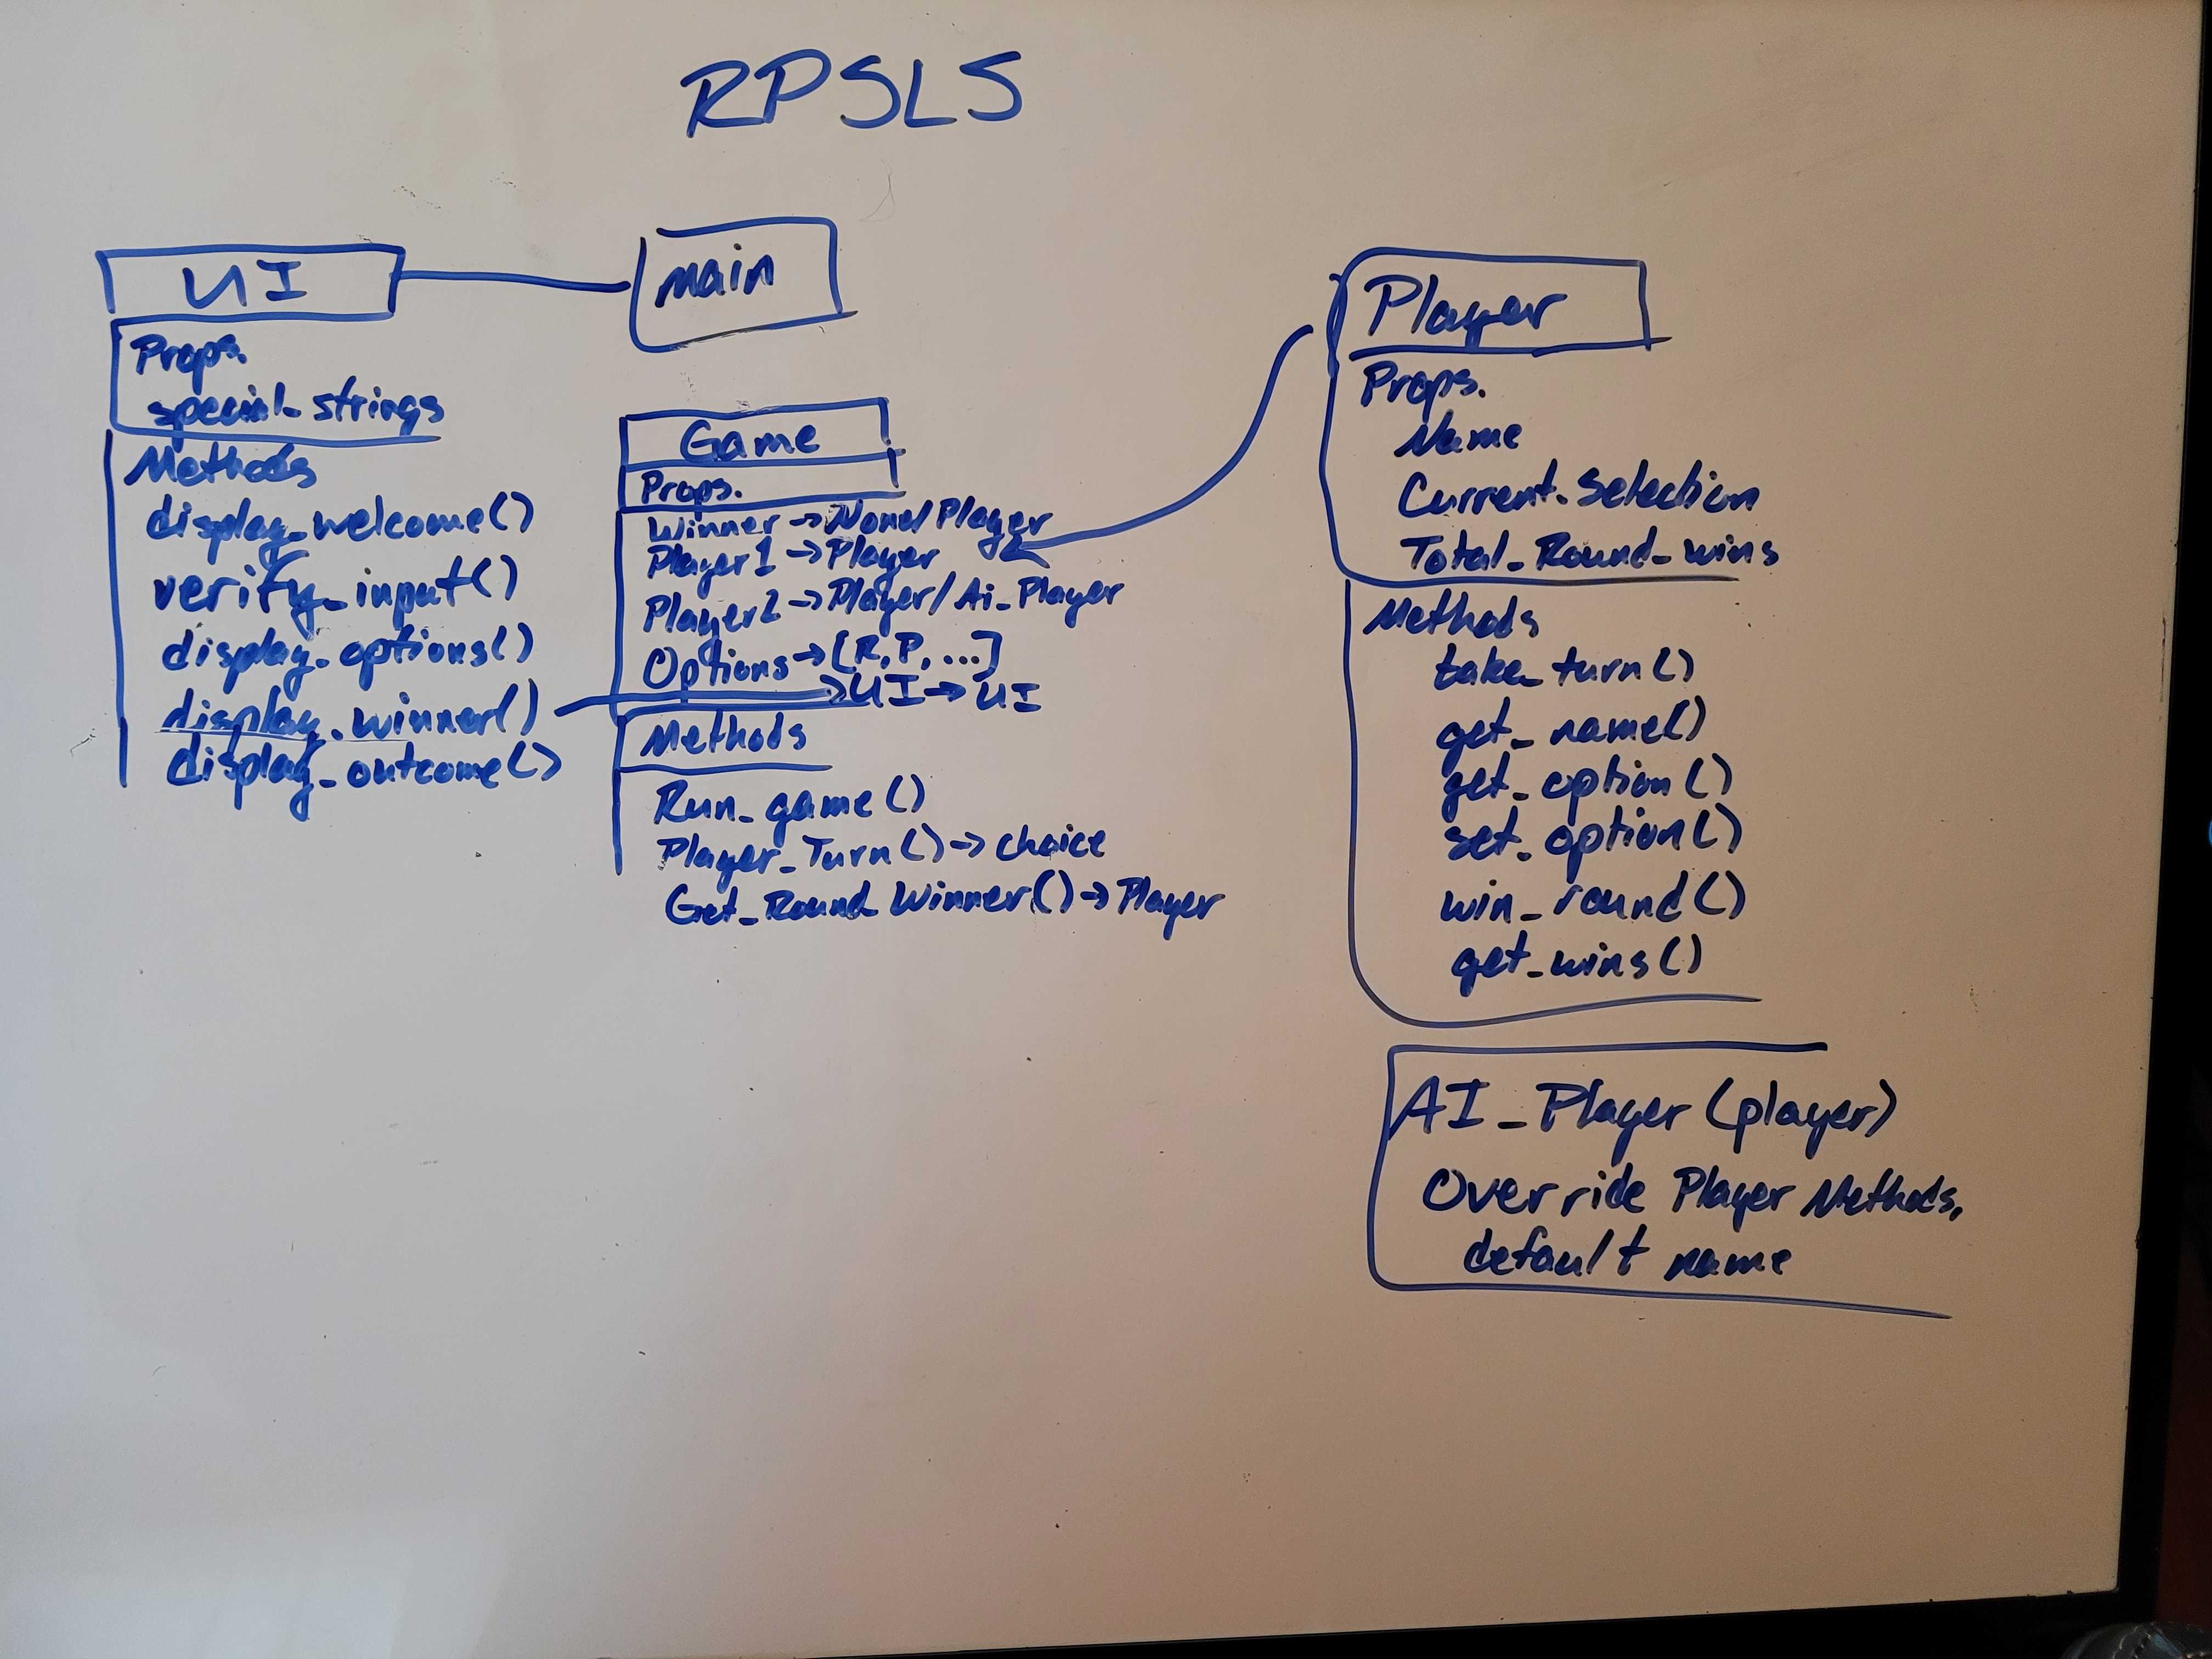 RPSLS
UI
Props.
special_strings
Methods
display_welcome()
verify_input()
display_options()
display_winner()
display_outcome()
main
Game
Props.
Winner → None/Player
Player1 → Player
Player2 → Player/Ai_Player
Options → [R, P, ...]
UI → UI
Methods
Run_game()
Player_Turn() → choice
Get_Round_Winner() → Player
Player
Props.
Name
Current_Selection
Total_Round_wins
Methods
take_turn()
get_name()
get_option()
set_option()
win_round()
get_wins()
AI_Player(player)
Override Player Methods,
default name